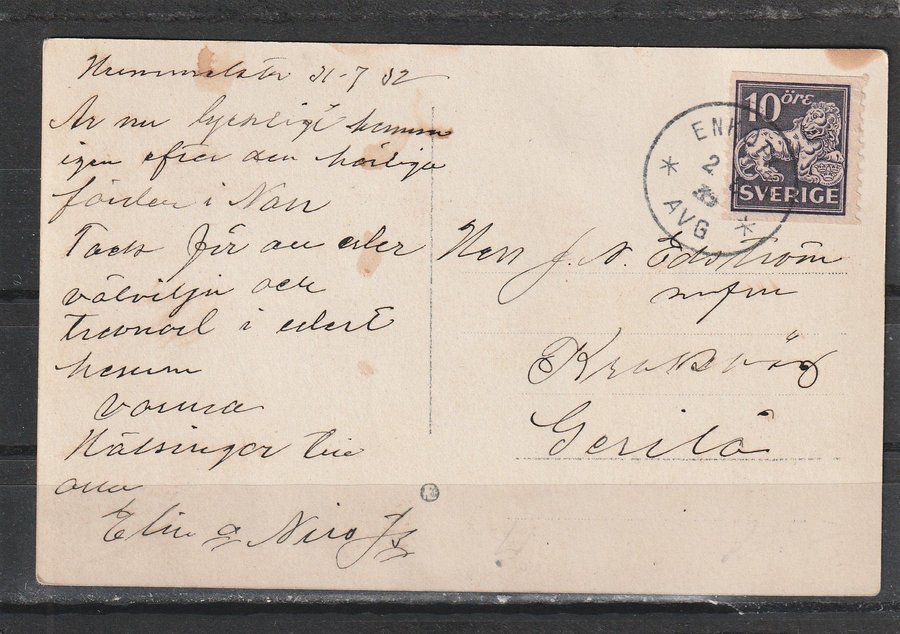 Hummelsta 31-7 32
Är nu lyckligt hemma
igen efter den härliga
färden i Norr
Tack för all eder
välvilja och
trevnad i edert
hem
varma
Hälsningar till
alla
Elin o Nils
10 ÖRE
SVERIGE
2
AVG
Herr J. N. Edström
m fru
Gerilå